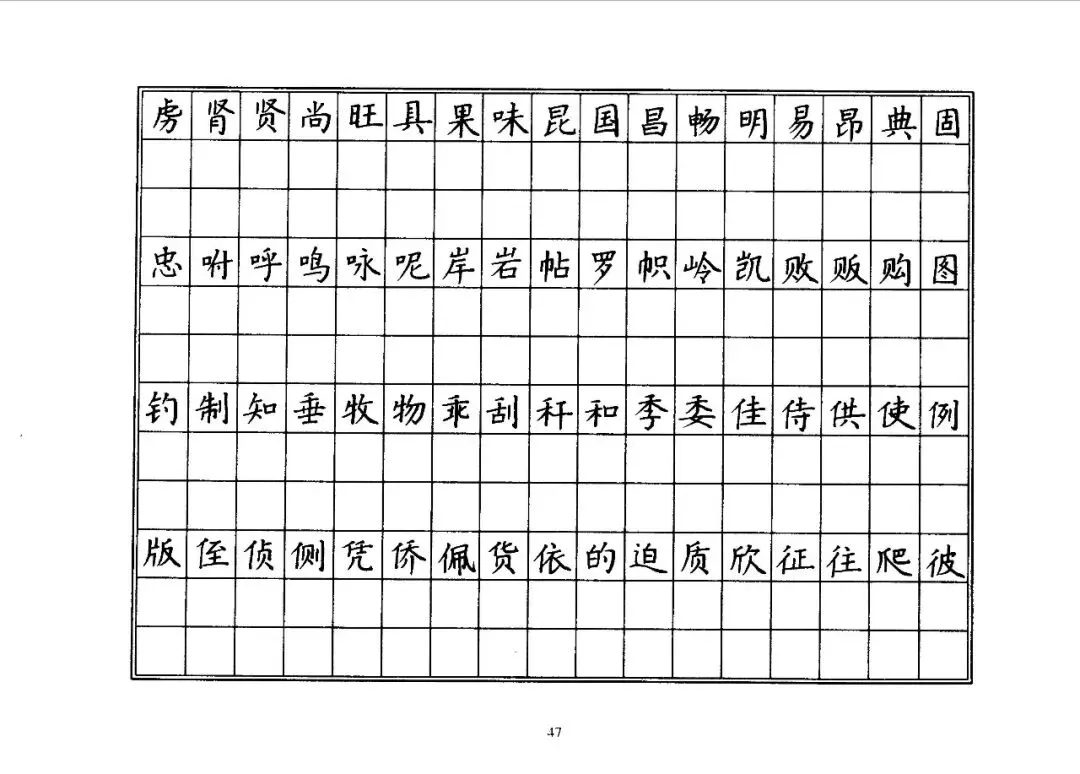 虏肾贤尚旺具果味昆国昌畅明易昂典固
忠咐呼鸣咏呢岸岩帖罗帜岭凯败贩购图
钓制知垂牧物乖刮秆和季委佳侍供使例
版侄侦侧凭侨佩货依的迫质欣征往爬彼
47